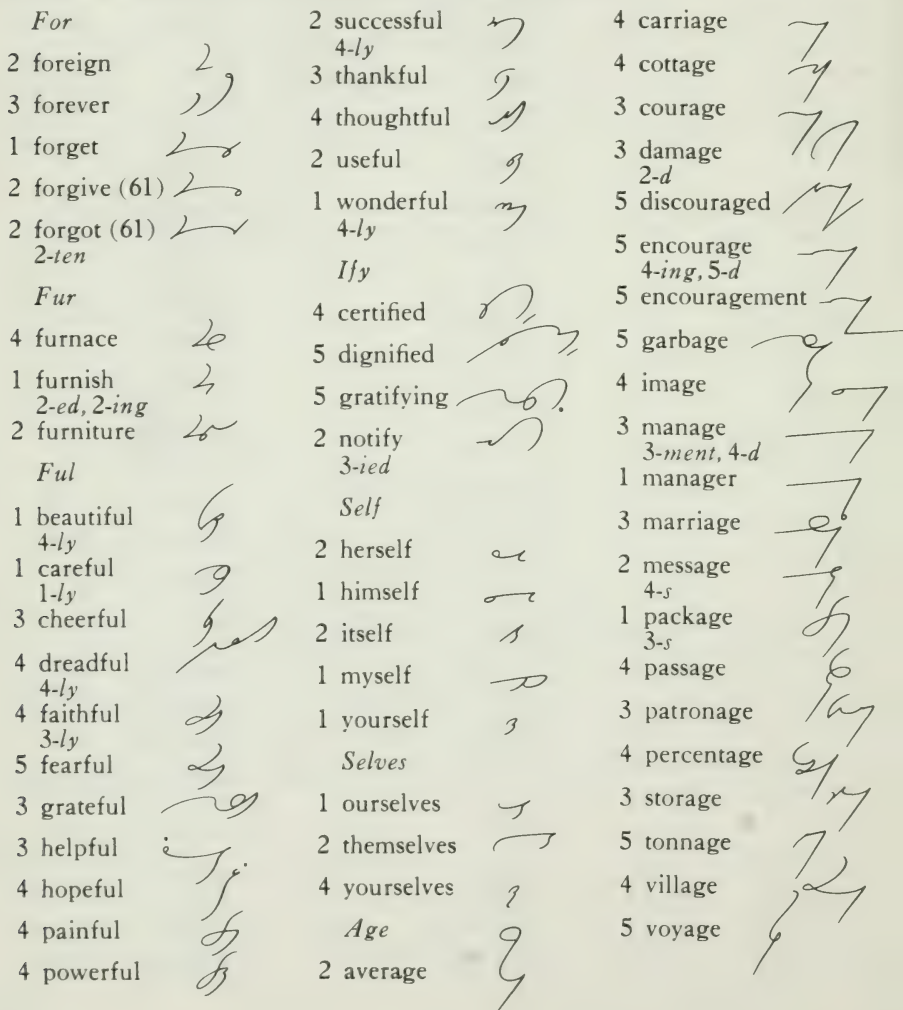 For
2 foreign
3 forever
1 forget
2 forgive (61)
2 forgot (61)
2-ten
Fur
4 furnace
1 furnish
2-ed, 2-ing
2 furniture
Ful
1 beautiful
4-ly
1 careful
1-ly
3 cheerful
4 dreadful
4-ly
4 faithful
3-ly
5 fearful
3 grateful
3 helpful
4 hopeful
4 painful
4 powerful
2 successful
4-ly
3 thankful
4 thoughtful
2 useful
1 wonderful
4-ly
Ify
4 certified
5 dignified
5 gratifying
2 notify
3-ied
Self
2 herself
1 himself
2 itself
1 myself
1 yourself
Selves
1 ourselves
2 themselves
4 yourselves
Age
2 average
4 carriage
4 cottage
3 courage
3 damage
2-d
5 discouraged
5 encourage
4-ing, 5-d
5 encouragement
5 garbage
4 image
3 manage
3-ment, 4-d
1 manager
3 marriage
2 message
4-s
1 package
3-s
4 passage
3 patronage
4 percentage
3 storage
5 tonnage
4 village
5 voyage